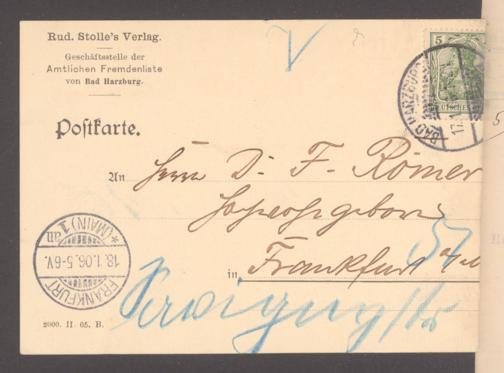 Rud. Stolle's Verlag.
Geschäftsstelle der
Amtlichen Fremdenliste
von Bad Harzburg.
5
BAD HARZBURG
17.1
Postkarte.
An Herrn Dr. F. Römer
Hochwohlgeboren
in Frankfurt a/M
*(MAIN) 1 an
18.1.06. 5-6V.
FRANKFURT
2000. II. 05. B.